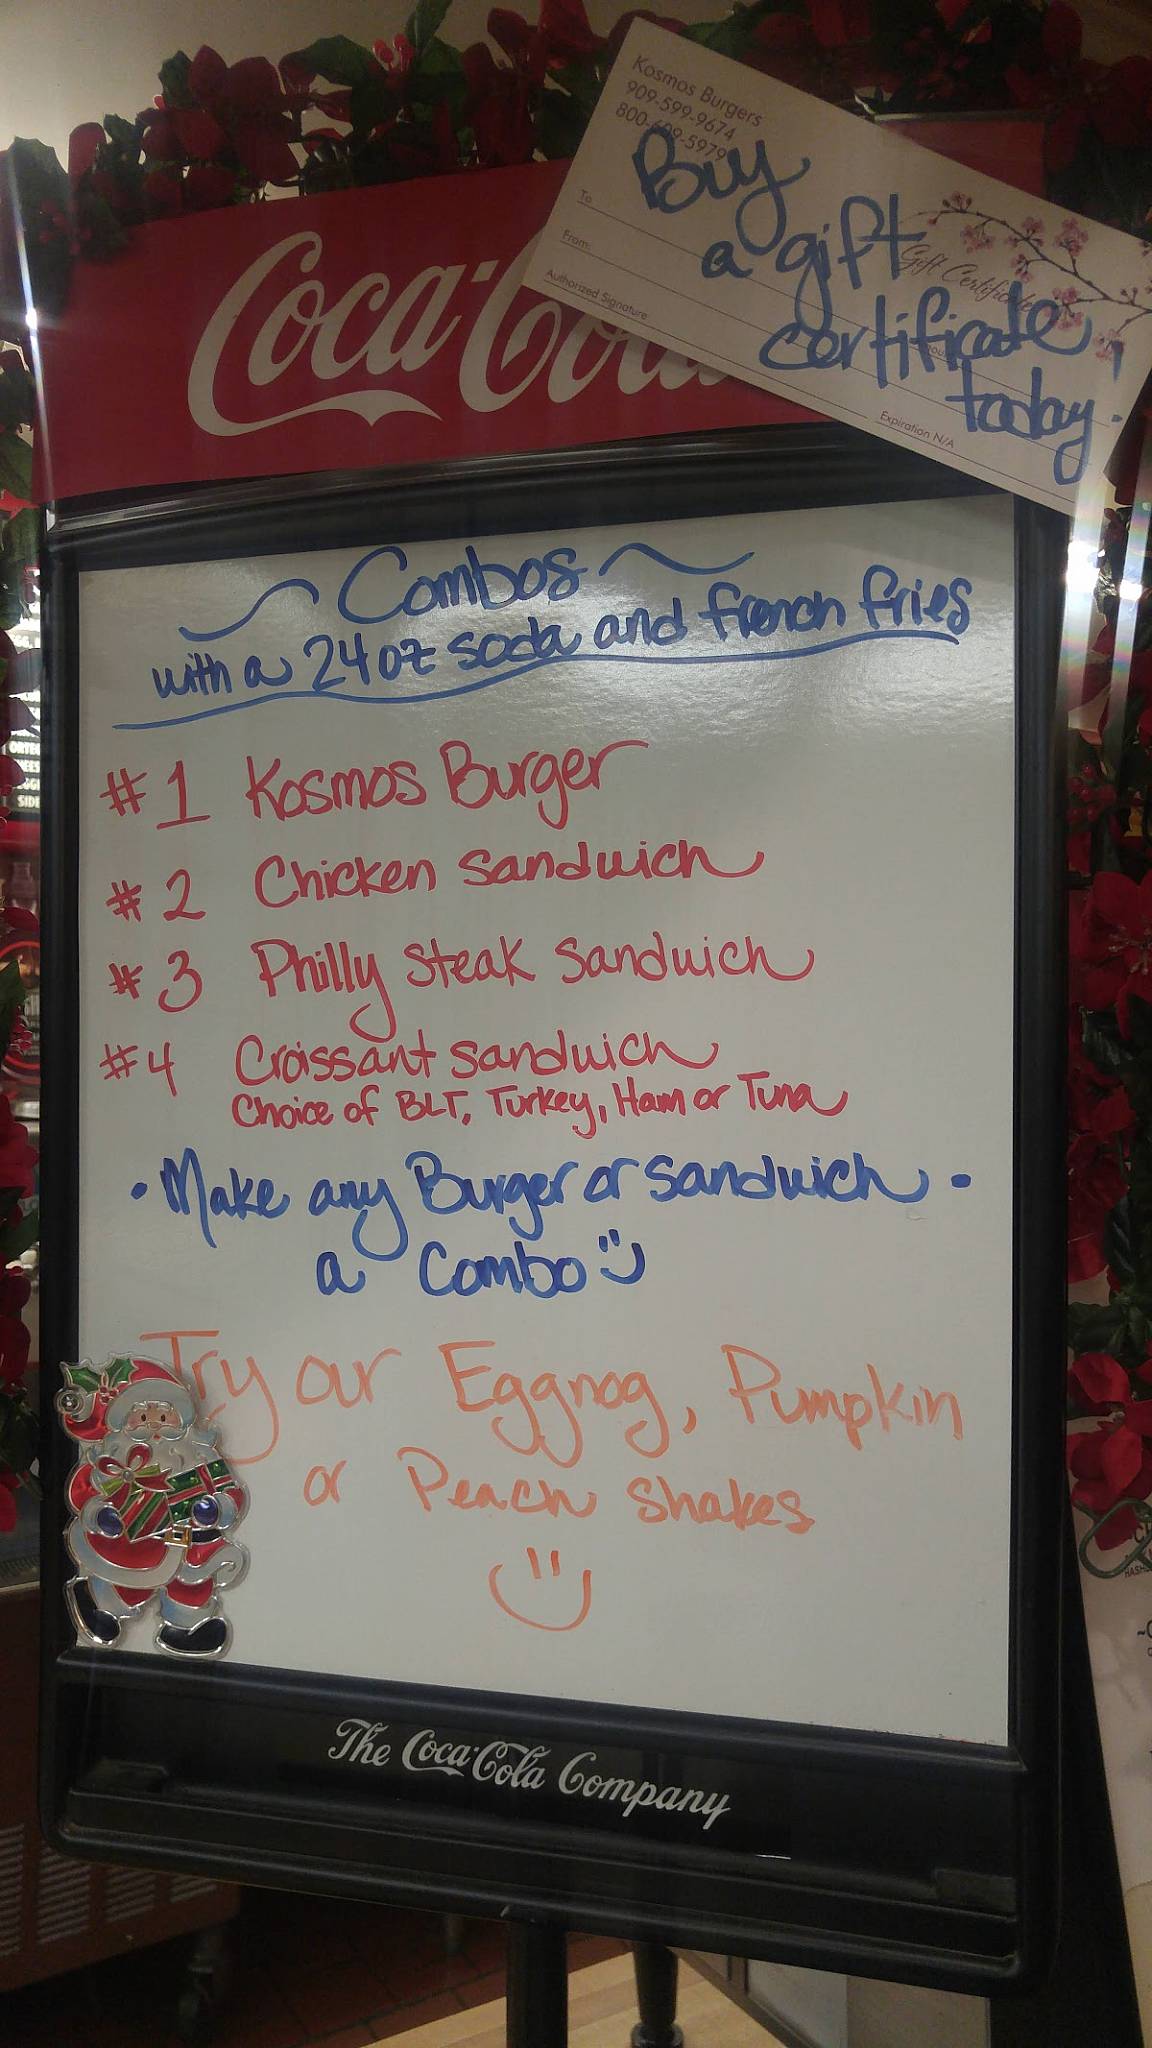 Kosmos Burgers
909-599-9674
Buy
a gift
certificate
today.
To
From:
Authorized Signature
Gift Certificate
Expiration N/A
Coca-Cola
Combos
with a 24oz soda and french fries
#1 Kosmos Burger
#2 Chicken Sandwich
#3 Philly Steak Sandwich
#4 Croissant Sandwich
Choice of BLT, Turkey, Ham or Tuna
• Make any Burger or Sandwich •
a Combo
Try our Eggnog, Pumpkin
or Peach Shakes
The Coca-Cola Company